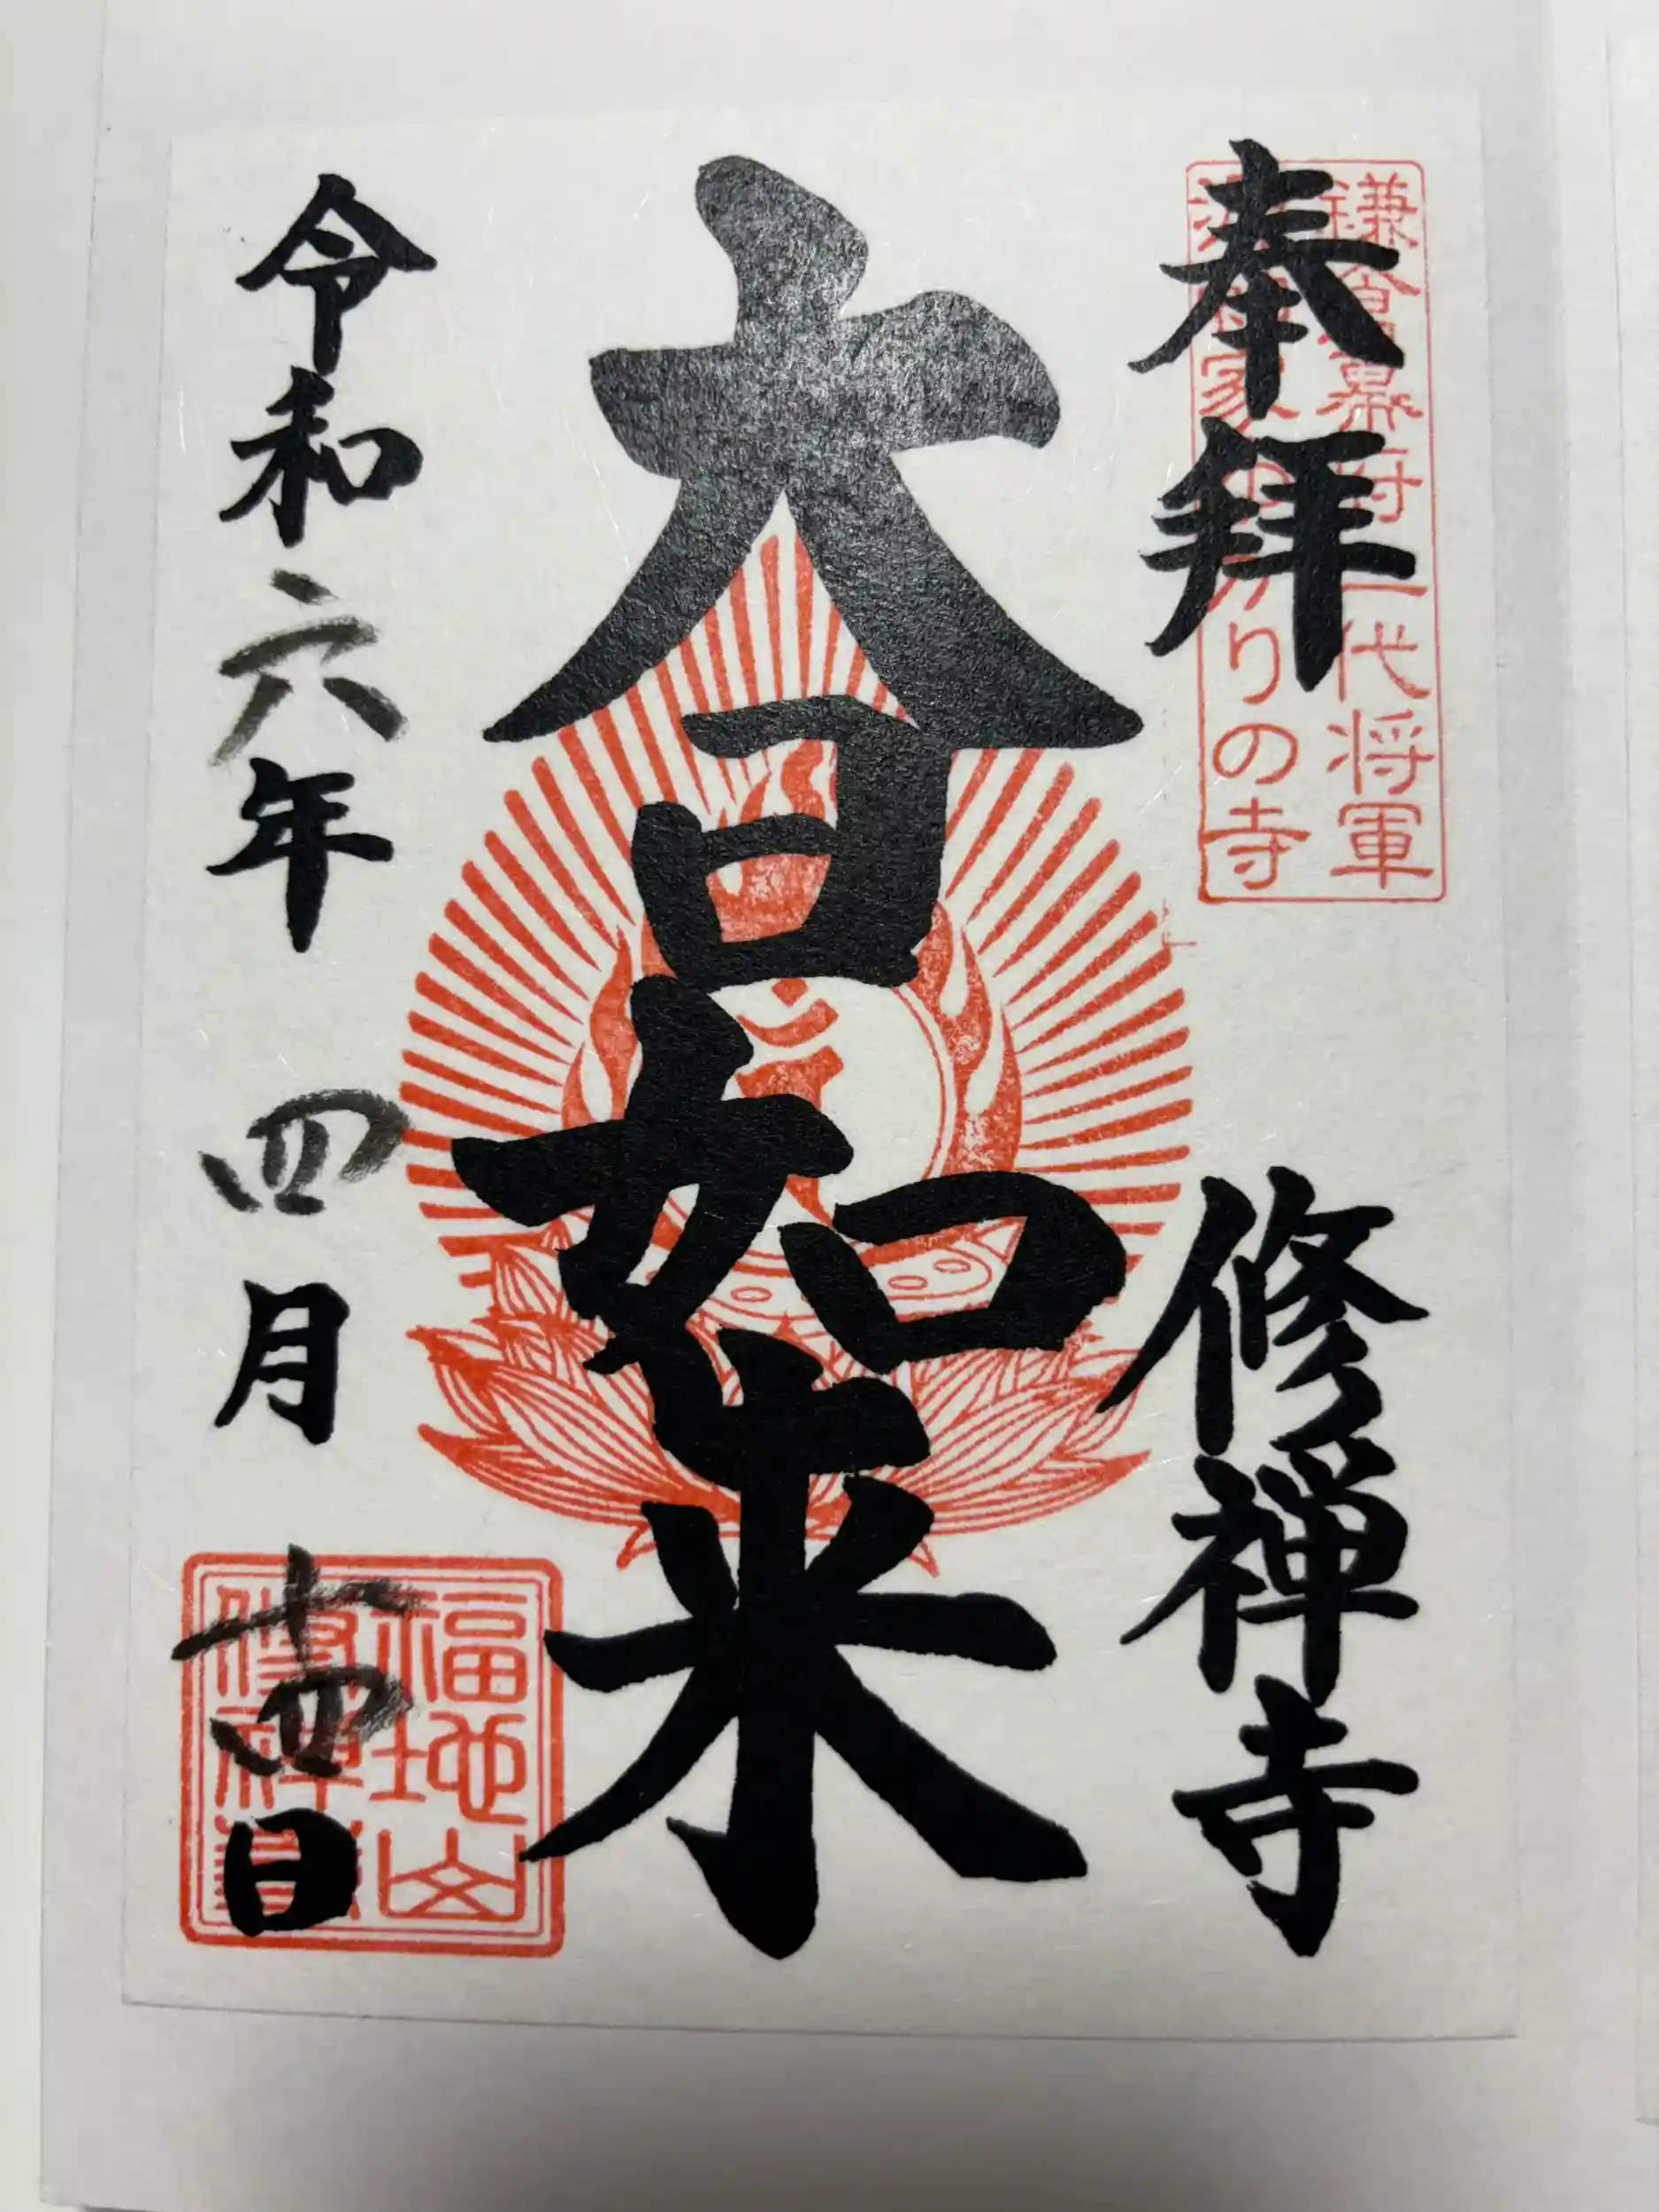 奉拝
鎌倉幕府二代将軍
源頼家ゆかりの寺
修禅寺
大日如来
令和六年四月十四日
福地山
修禅寺